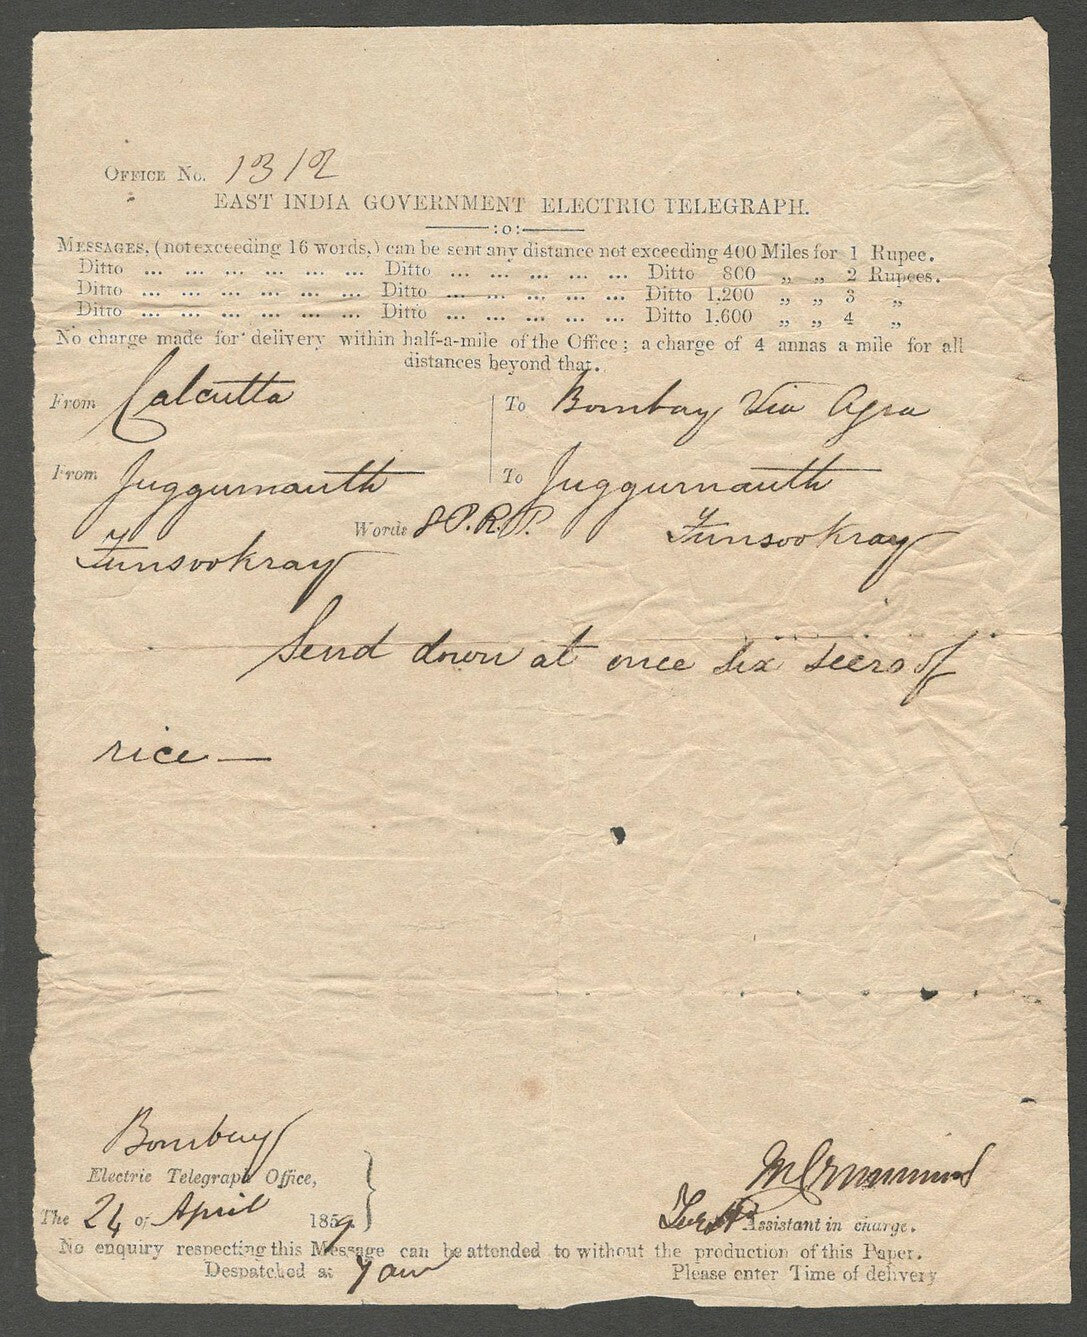 OFFICE No. 1312
EAST INDIA GOVERNMENT ELECTRIC TELEGRAPH.
:o:
MESSAGES, (not exceeding 16 words,) can be sent any distance not exceeding 400 Miles for 1 Rupee.
Ditto ... ... ... ... ... ... Ditto ... ... ... ... ... Ditto 800 „ „ 2 Rupees.
Ditto ... ... ... ... ... ... Ditto ... ... ... ... ... Ditto 1,200 „ „ 3 „
Ditto ... ... ... ... ... ... Ditto ... ... ... ... ... Ditto 1,600 „ „ 4 „
No charge made for delivery within half-a-mile of the Office; a charge of 4 annas a mile for all
distances beyond that.
From Calcutta To Bombay Via Agra
From Juggurnauth To Juggurnauth
Words 8 P.R.P.
Funsookray Funsookray
Send down at once six seers of
rice —
Bombay
Electric Telegraph Office,
The 24 of April 1859
Assistant in charge.
No enquiry respecting this Message can be attended to without the production of this Paper.
Despatched at 7 am
Please enter Time of delivery